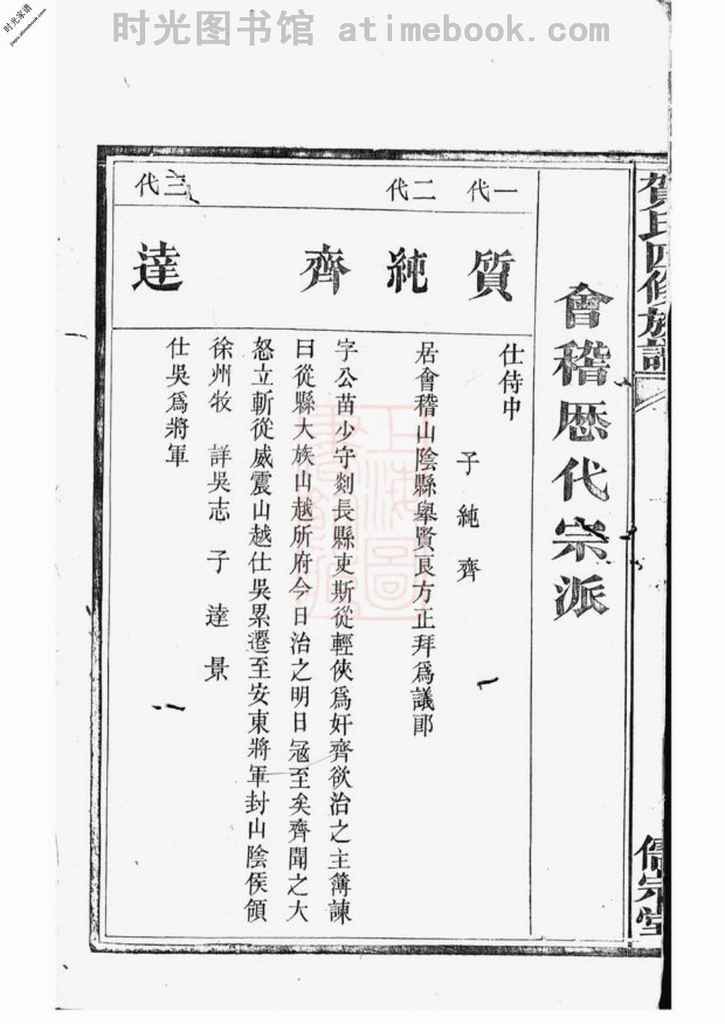 时光图书馆 atimebook.com
时光家谱
賀氏四修族譜
儒宗堂
會稽歷代宗派
一代
質
仕侍中
子純齊
二代
純
居會稽山陰縣舉賢良方正拜爲議郎
齊
字公苗少守剡長縣吏斯從輕俠爲奸齊欲治之主簿諫
曰從縣大族山越所府今日治之明日冦至矣齊聞之大
怒立斬從威震山越仕吳累遷至安東將軍封山陰侯領
徐州牧 詳吳志 子達景
三代
達
仕吳爲將軍